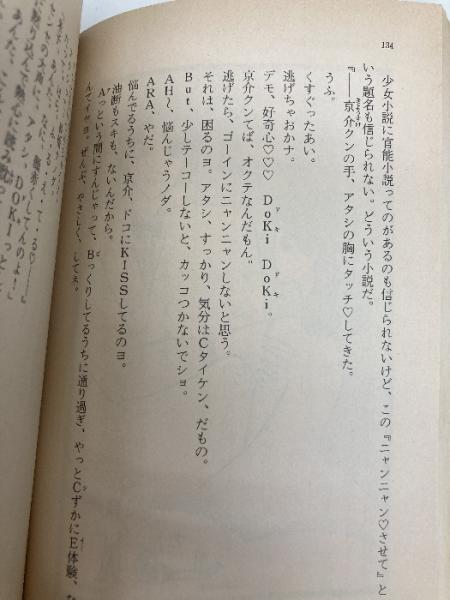 134
少女小説に官能小説ってのがあるのも信じられないけど、この『ニャンニャン♡させて』と
いう題名も信じられない。どういう小説だ。
『――京介クンの手、アタシの胸にタッチ♡してきた。
うふ。
くすぐったあい。
逃げちゃおかナ。
デモ、好奇心♡♡♡ DoKi DoKi。
京介クンてば、オクテなんだもん。
逃げたら、ゴーインにニャンニャンしないと思う。
それは、困るのヨ。アタシ、すっかり、気分はCタイケン、だもの。
But、少しテーコーしないと、カッコつかないでショ。
AH〜、悩んじゃうノダ。
ARA、やだ。
悩んでるうちに、京介、ドコにKISSしてるのヨ。
油断もスキも、ないんだから。
Aっという間にすんじゃって、Bっくりしてるうちに通り過ぎ、やっとCずかにE体験、な
んてイヤヨ。ぜんぶ、やさしく、して♡。